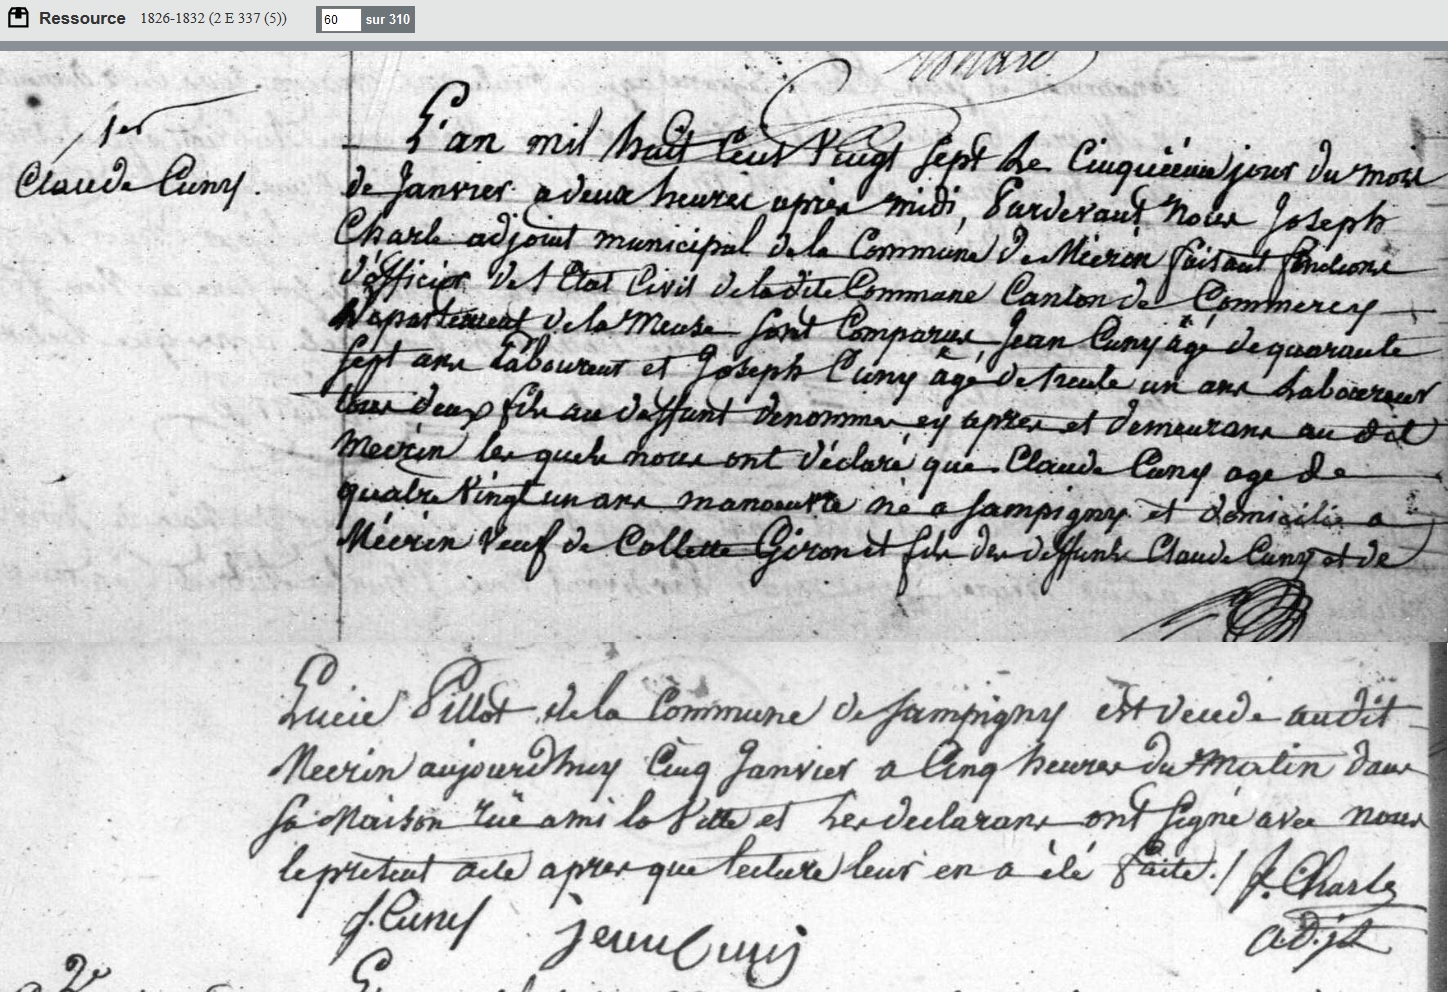 Ressource 1826-1832 (2 E 337 (5)) 60 sur 310
1er
Claude Cuny.
L'an mil huit Cent Vingt Sept Le Cinquième jour du mois
de Janvier a deux heures après midi, Pardevant Nous Joseph
Charle adjoint municipal de la Commune De Mécrin faisant fonctions
d'officier de l'Etat Civil de la dite Commune Canton de Commercy
Département de la Meuse sont Comparus Jean Cuny âgé de quarante
sept ans Laboureur et Joseph Cuny âgé de trente un ans Laboureur
tous deux fils au deffunt denommé cy apres et demeurans au dit
Mécrin les quels nous ont déclaré que Claude Cuny age de
quatre Vingt un ans manoeuvre né a Sampigny et domicilié a
Mécrin Veuf de Collette Giron et fils des deffunts Claude Cuny et de
Lucie Pillot de la Commune de Sampigny est decedé audit
Mecrin aujourd'huy Cinq Janvier a Cinq heures du Matin dans
sa Maison rüe ami la Ville et Les declarans ont Signé avec nous
le présent acte apres que lecture leur en a été faite./. J. Charle
J. Cuny jean Cuny adjt
2e